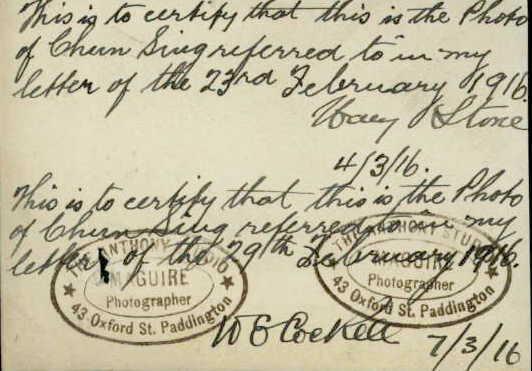 This is to certify that this is the Photo
of Chun Sing referred to in my
letter of the 23rd February 1916
Stone
4/3/16.
This is to certify that this is the Photo
of Chun Sing referred to in my
letter of the 29th February 1916.
THE ANTHONY STUDIO
MAGUIRE
Photographer
43 Oxford St. Paddington
THE ANTHONY STUDIO
MAGUIRE
Photographer
43 Oxford St. Paddington
W E Cockell
7/3/16